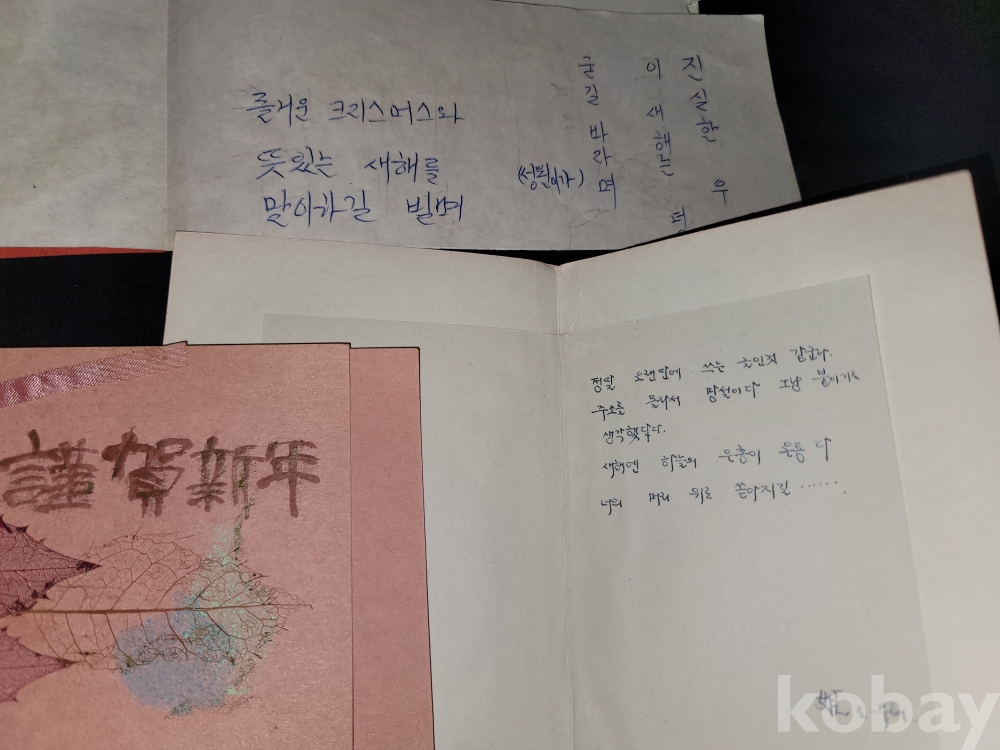 즐거운 크리스머스와
뜻있는 새해를
맞이하길 빌며
진실한 우정
이 새해는
바라며
謹賀新年
정말 오랜만에 쓰는 글인것 같구나.
주소를 몰라서 망설이다 그냥 붙이기로
생각했단다.
새해엔 하늘의 은총이 온통 다
너의 머리 위로 쏟아지길 ······.
姬
kobay